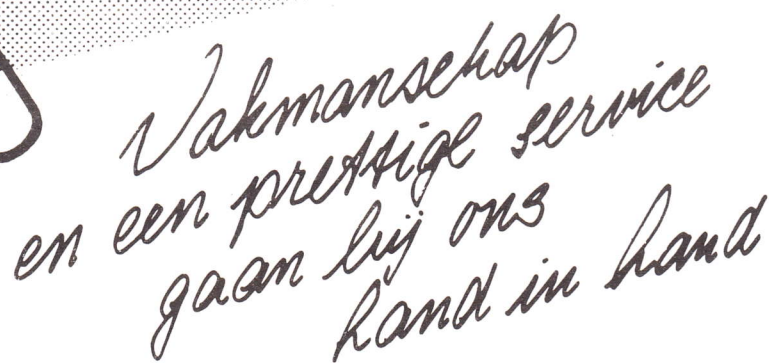 Vakmanschap
en een prettige service
gaan bij ons
hand in hand